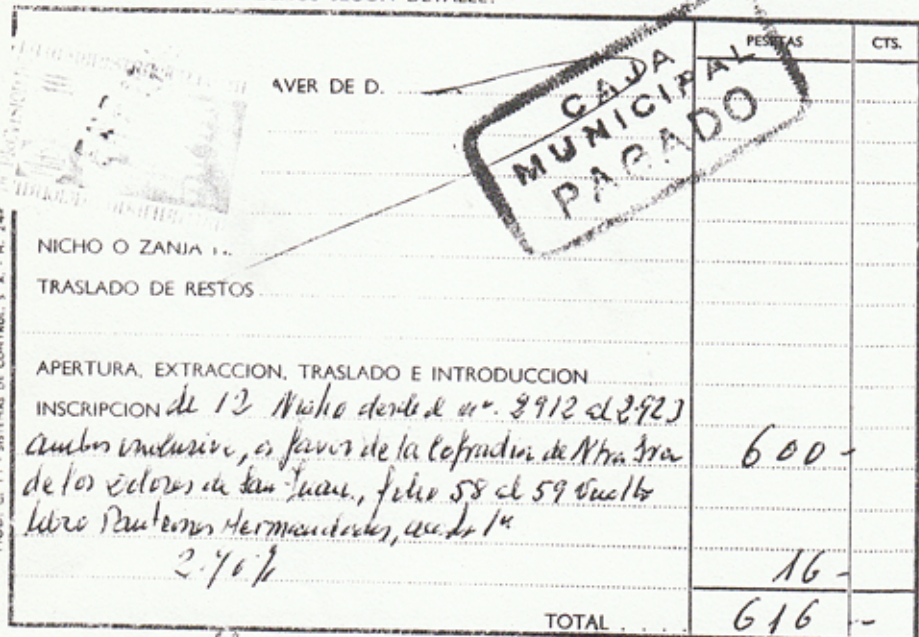 PESETAS CTS.
AVER DE D.
CAJA
MUNICIPAL
PAGADO
NICHO O ZANJA
TRASLADO DE RESTOS
APERTURA, EXTRACCION, TRASLADO E INTRODUCCION
INSCRIPCION de 12 Nicho desde el nº. 2912 al 2923
ambos inclusive, a favor de la Cofradia de Ntra Sra 600-
de los Dolores de San Juan, folio 58 al 59 vuelto
libro Panteones Hermandades,
16-
TOTAL 616 -